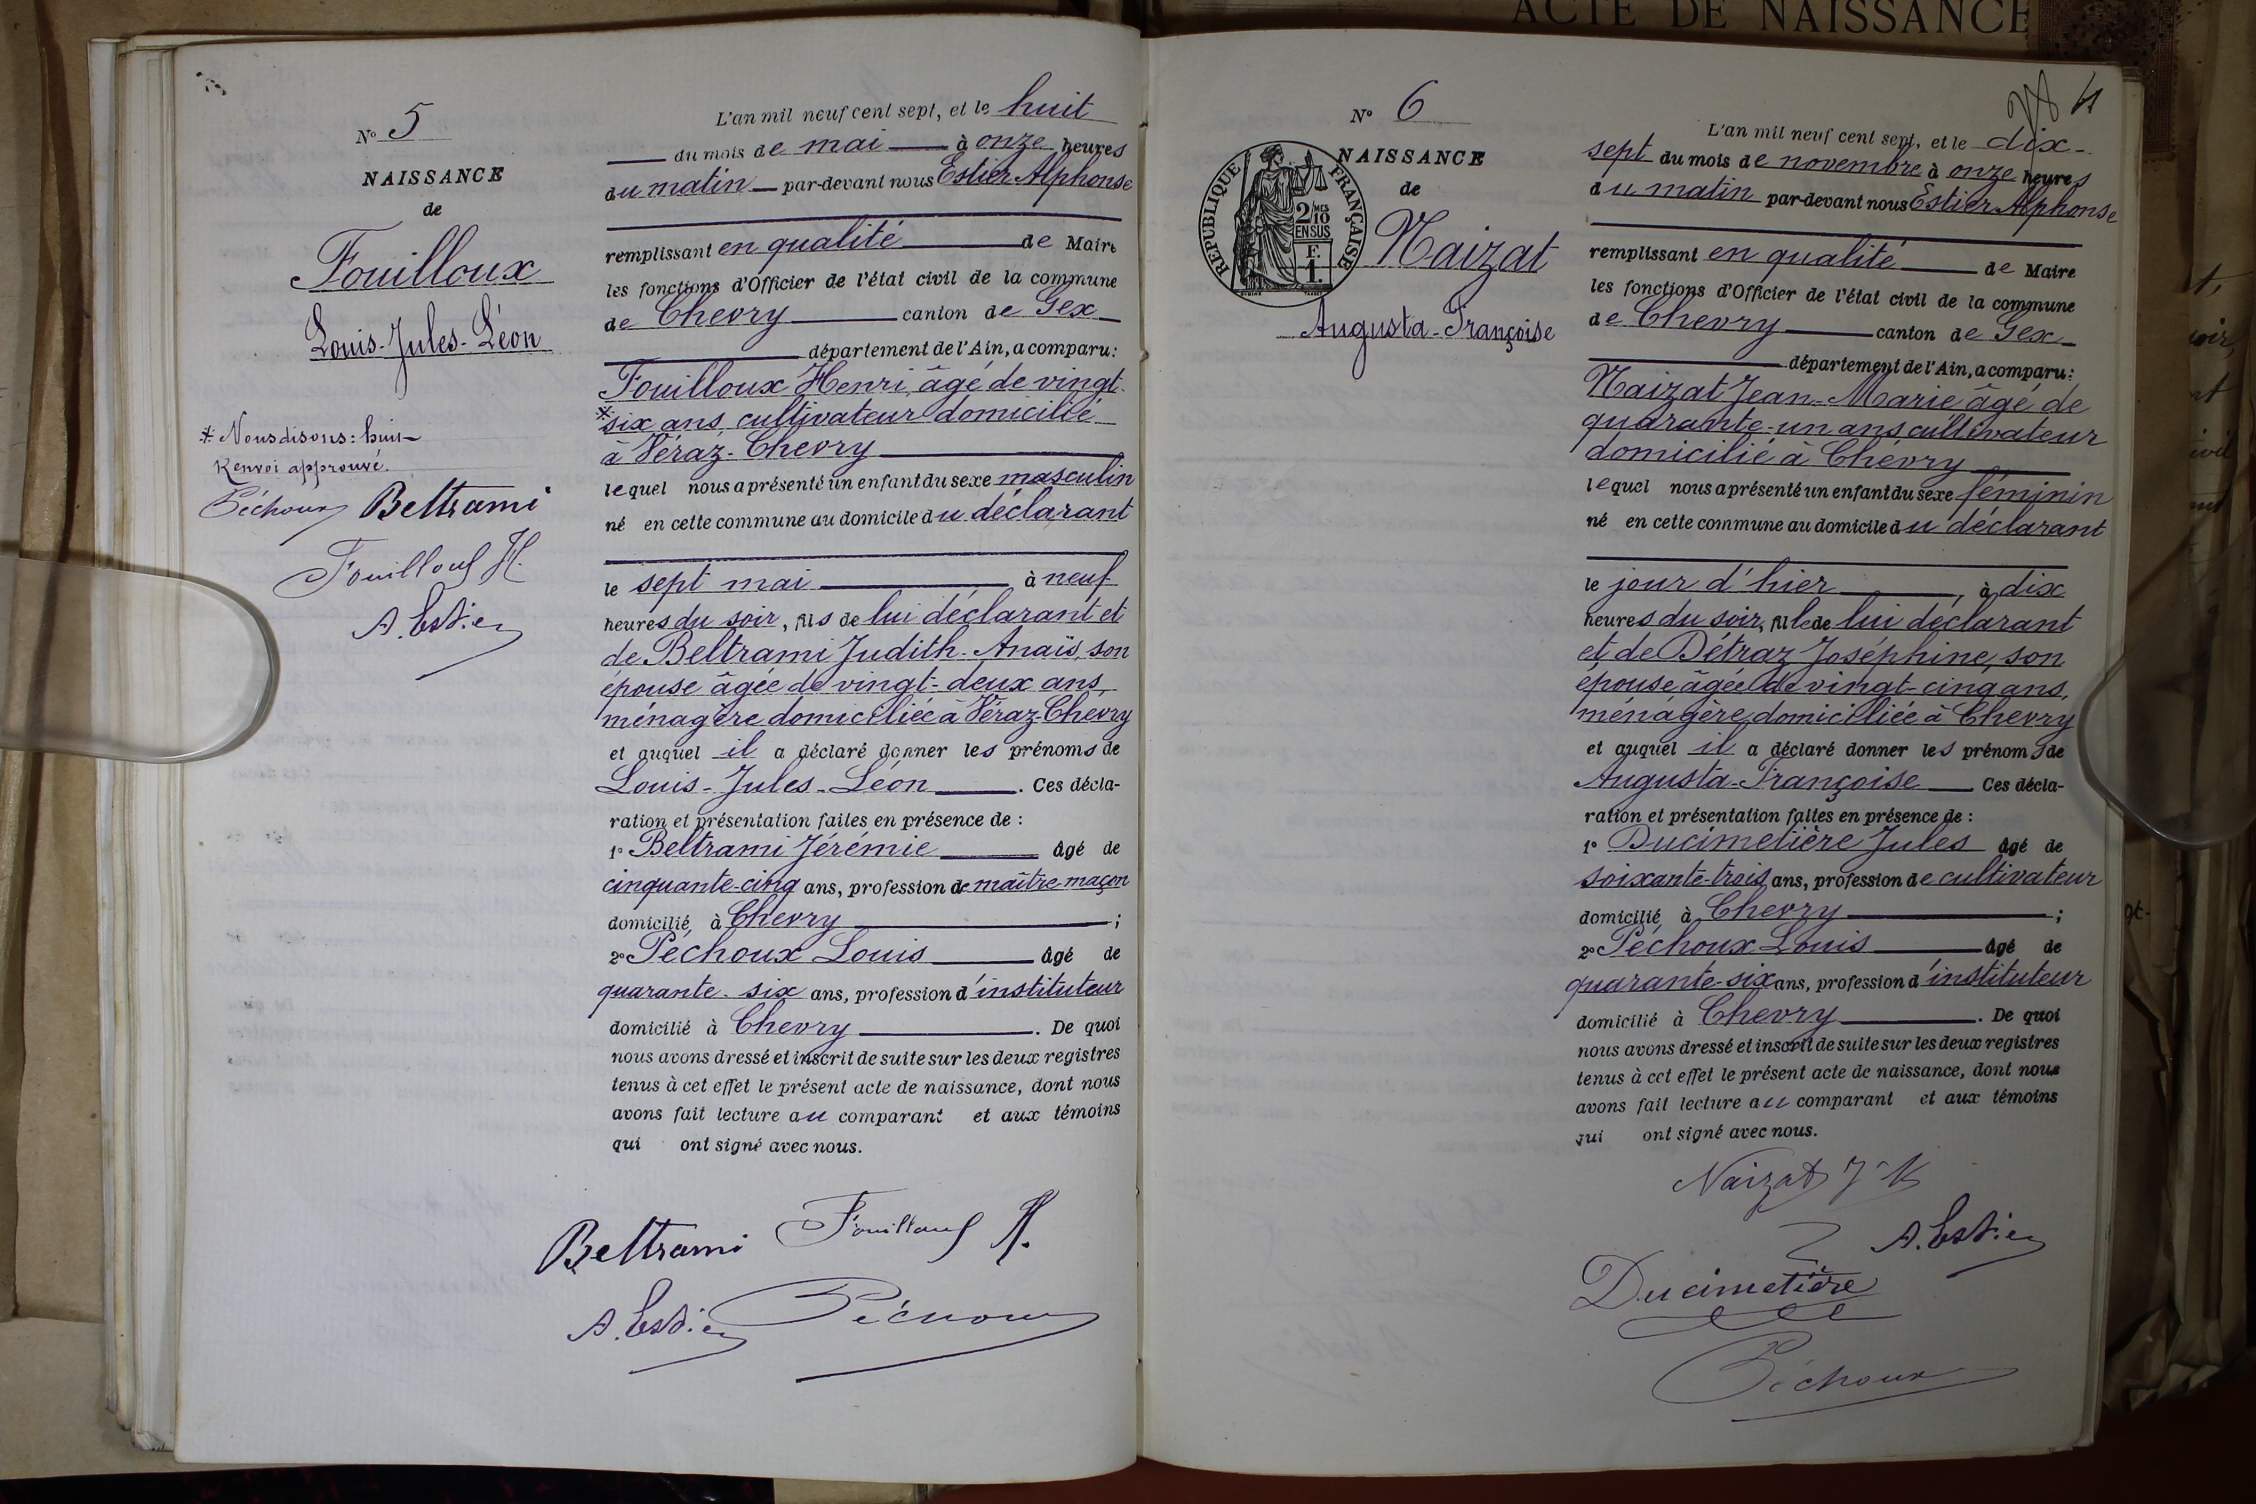 ACTE DE NAISSANCE
N° 5
NAISSANCE
de
Fouilloux
Louis-Jules-Léon
* Nous disons: huit
Renvoi approuvé.
Péchoux Beltrami
Fouilloux H.
A. Estier
L'an mil neuf cent sept, et le huit
du mois de mai à onze heures
du matin par-devant nous Estier Alphonse
remplissant en qualité de Maire
les fonctions d'Officier de l'état civil de la commune
de Chevry canton de Gex
département de l'Ain, a comparu:
Fouilloux Henri, âgé de vingt-
*six ans, cultivateur domicilié
à Véraz-Chevry
lequel nous a présenté un enfant du sexe masculin
né en cette commune au domicile du déclarant
le sept mai à neuf
heures du soir, fils de lui déclarant et
de Beltrami Judith-Anaïs, son
épouse âgée de vingt-deux ans,
ménagère domiciliée à Véraz-Chevry
et auquel il a déclaré donner les prénoms de
Louis-Jules-Léon. Ces décla-
ration et présentation faites en présence de :
1° Beltrami Jérémie âgé de
cinquante-cinq ans, profession de maître-maçon
domicilié à Chevry ;
2° Péchoux Louis âgé de
quarante-six ans, profession d'instituteur
domicilié à Chevry. De quoi
nous avons dressé et inscrit de suite sur les deux registres
tenus à cet effet le présent acte de naissance, dont nous
avons fait lecture au comparant et aux témoins
qui ont signé avec nous.
Beltrami Fouilloux H.
A. Estier Péchoux
4
N° 6
RÉPUBLIQUE FRANÇAISE
2/10 MES
EN SUS
F.
1.
NAISSANCE
de
Naizat
Augusta-Françoise
L'an mil neuf cent sept, et le dix-
sept du mois de novembre à onze heures
du matin par-devant nous Estier Alphonse
remplissant en qualité de Maire
les fonctions d'Officier de l'état civil de la commune
de Chevry canton de Gex
département de l'Ain, a comparu:
Naizat Jean-Marie âgé de
quarante-un ans cultivateur
domicilié à Chevry
lequel nous a présenté un enfant du sexe féminin
né en cette commune au domicile du déclarant
le jour d'hier, à dix
heures du soir, fille de lui déclarant
et de Détraz Joséphine, son
épouse âgée de vingt-cinq ans,
ménagère domiciliée à Chevry
et auquel il a déclaré donner les prénoms de
Augusta-Françoise Ces décla-
ration et présentation faites en présence de :
1° Ducimetière Jules âgé de
soixante-trois ans, profession de cultivateur
domicilié à Chevry ;
2° Péchoux Louis âgé de
quarante-six ans, profession d'instituteur
domicilié à Chevry. De quoi
nous avons dressé et inscrit de suite sur les deux registres
tenus à cet effet le présent acte de naissance, dont nous
avons fait lecture au comparant et aux témoins
qui ont signé avec nous.
Naizat J-M
A. Estier
Ducimetière
Péchoux